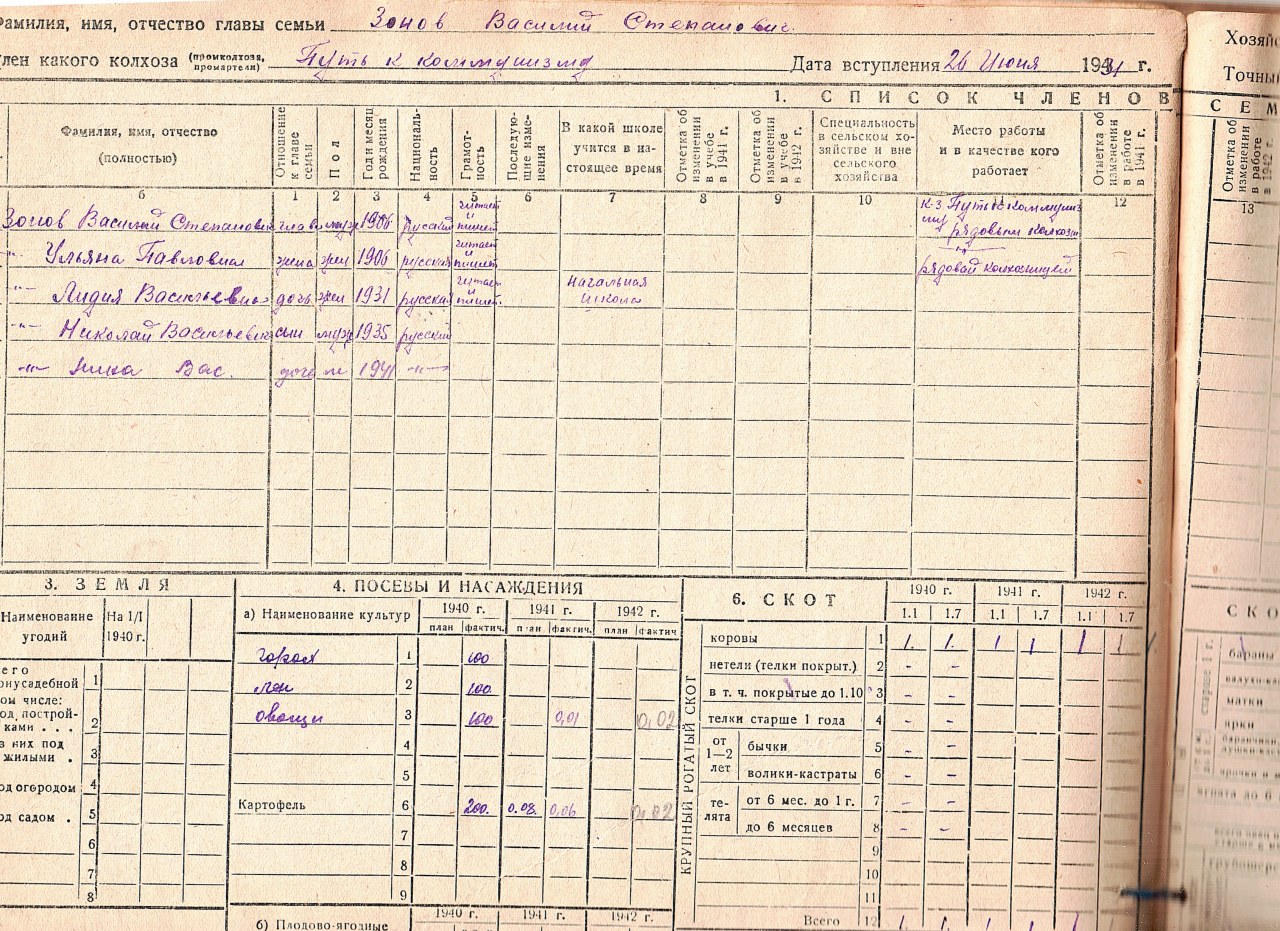 Фамилия, имя, отчество главы семьи Зонов Василий Степанович.
лен какого колхоза (промколхоза, промартели) Путь к коммунизму Дата вступления 26 Июня 1931 г.
1. СПИСОК ЧЛЕНОВ
Фамилия, имя, отчество (полностью) Отношение к главе семьи Пол Год и месяц рождения Националь-ность Грамот-ность Последую-щие изме-нения В какой школе учится в на-стоящее время Отметка об изменении в учебе в 1941 г. Отметка об изменении в учебе в 1942 г. Специальность в сельском хо-зяйстве и вне сельского хозяйства Место работы и в качестве кого работает Отметка об изменении в работе в 1941 г.
б 1 2 3 4 5 6 7 8 9 10 11 12
Зонов Василий Степанович глав муж 1906 русский читает и пишет к-з Путь к коммунизму рядовым колхозн
-"- Ульяна Павловна жена жен 1906 русская читает и пишет -"- рядовой колхозницей
-"- Лидия Васильевна дочь жен 1931 русская читает и пишет Начальная школа
-"- Николай Васильевич сын муж 1935 русский
-"- Нина Вас. дочь 1941 -"-
3. ЗЕМЛЯ
Наименование угодий На 1/I 1940 г.
его
риусадебной 1
ом числе:
од построй-ками . . . 2
з них под жилыми . 3
од огородом 4
од садом . 5
6
7
8
4. ПОСЕВЫ И НАСАЖДЕНИЯ
а) Наименование культур 1940 г. 1941 г. 1942 г.
план фактич. план фактич. план фактич
горох 1 100
лен 2 100
овощи 3 100 0,01 0,02
4
5
Картофель 6 200. 0.08. 0,06 0,02
7
8
9
1940 г. 1941 г. 1942 г.
б) Плодово-ягодные
6. СКОТ
1940 г. 1941 г. 1942 г.
1.1 1.7 1.1 1.7 1.1 1.7
КРУПНЫЙ РОГАТЫЙ СКОТ
коровы 1 1. 1. 1 1 1 1
нетели (телки покрыт.) 2 - -
в т. ч. покрытые до 1.10 3 - -
телки старше 1 года 4 - -
от 1—2 лет бычки 5 - -
волики-кастраты 6 - -
те-лята от 6 мес. до 1 г. 7 - -
до 6 месяцев 8 - -
9
10
11
Всего 12 1 1 1 1 1
Хозяйс
Точный
СЕМ
Отметка об изменении в работе в 1942 г.
13
СКО
старше 1 г.
бараны
валухи-ка
матки
ярки